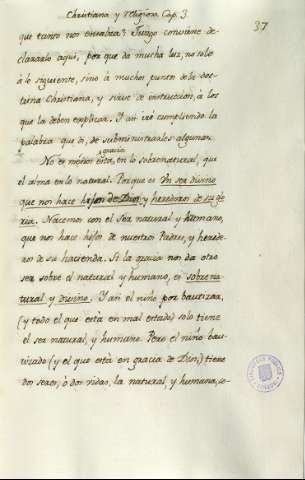 Christiana y Religiosa Cap. 3.
37
que tanto nos ensalza? Juzgo conviene de-
clararlo aquí, por que da mucha luz, no solo
à lo siguiente, sino à mucho punto de la doc-
trina Christiana, y sirve de instruccion, à los
que la deben explicar. Y asi irè cumpliendo la
palabra que di, de subministrarles algunas.
No es menos esta gracia, en lo sobrenatural, que
el alma en lo natural. Porque es Un ser divino
que nos hace hijos de Dios, y herederos de su glo-
ria. Nacemos con el Sèr natural y humano,
que nos hace hijos de nuestros Padres, y herede-
ros de su hacienda. Si la gracia nos da otro
ser sobre el natural y humano, es sobrena-
tural y divino. Y asi el niño por bautizar,
(y todo el que està en mal estado) solo tiene
el ser natural, y humano. Pero el niño bau-
tizado (y el que està en gracia de Dios,) tiene
dos seres, ò dos vidas, la natural, y humana, co-